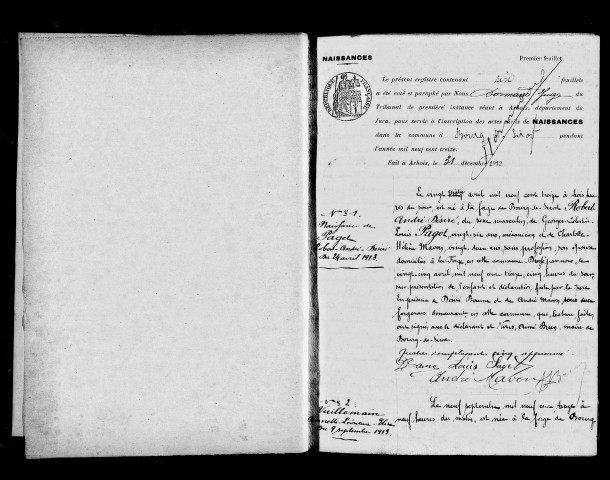 NAISSANCES
Premier feuillet.
Le présent registre contenant six feuillets
a été coté et paraphé par Nous Juge du
Tribunal de première instance séant à Arbois, département du
Jura, pour servir à l'inscription des actes de NAISSANCES
dans la commune d Bourg-Sirod pendant
l'année mil neuf cent treize.
Fait à Arbois, le 21 décembre 1912
RÉPUBLIQUE FRANÇAISE
N° 1
Naissance de
Pagot
Robert-André-Désiré
Du 24 avril 1913
Le vingt avril mil neuf cent treize à trois heures
du soir, est né à la forge de Bourg-de-Sirod, Robert
André-Désiré, du sexe masculin, de Georges-Célestin
Louis Pagot, vingt-six ans, mécanicien et de Charlotte
Hélène Mavon, vingt-deux ans, sans profession, son épouse
domiciliés à la Forge, en cette commune. Dressé par nous, le
vingt-cinq avril, mil neuf cent treize, cinq heures du soir,
sur présentation de l'enfant et déclaration faite par le père
En présence de Désiré Baune et de André Mavon, tous deux
forgerons demeurant en cette commune, qui, lecture faite,
ont signé, avec le déclarant et Nous, Aimé Brun, maire de
Bourg-de-Sirod.
Quatre remplaçant cinq approuvé
Baune Louis Pagot
André Mavon
N° 2
Vuillemain
Du 9 septembre 1913
Le neuf septembre mil neuf cent treize à
neuf heures du matin, est née à la forge de Bourg